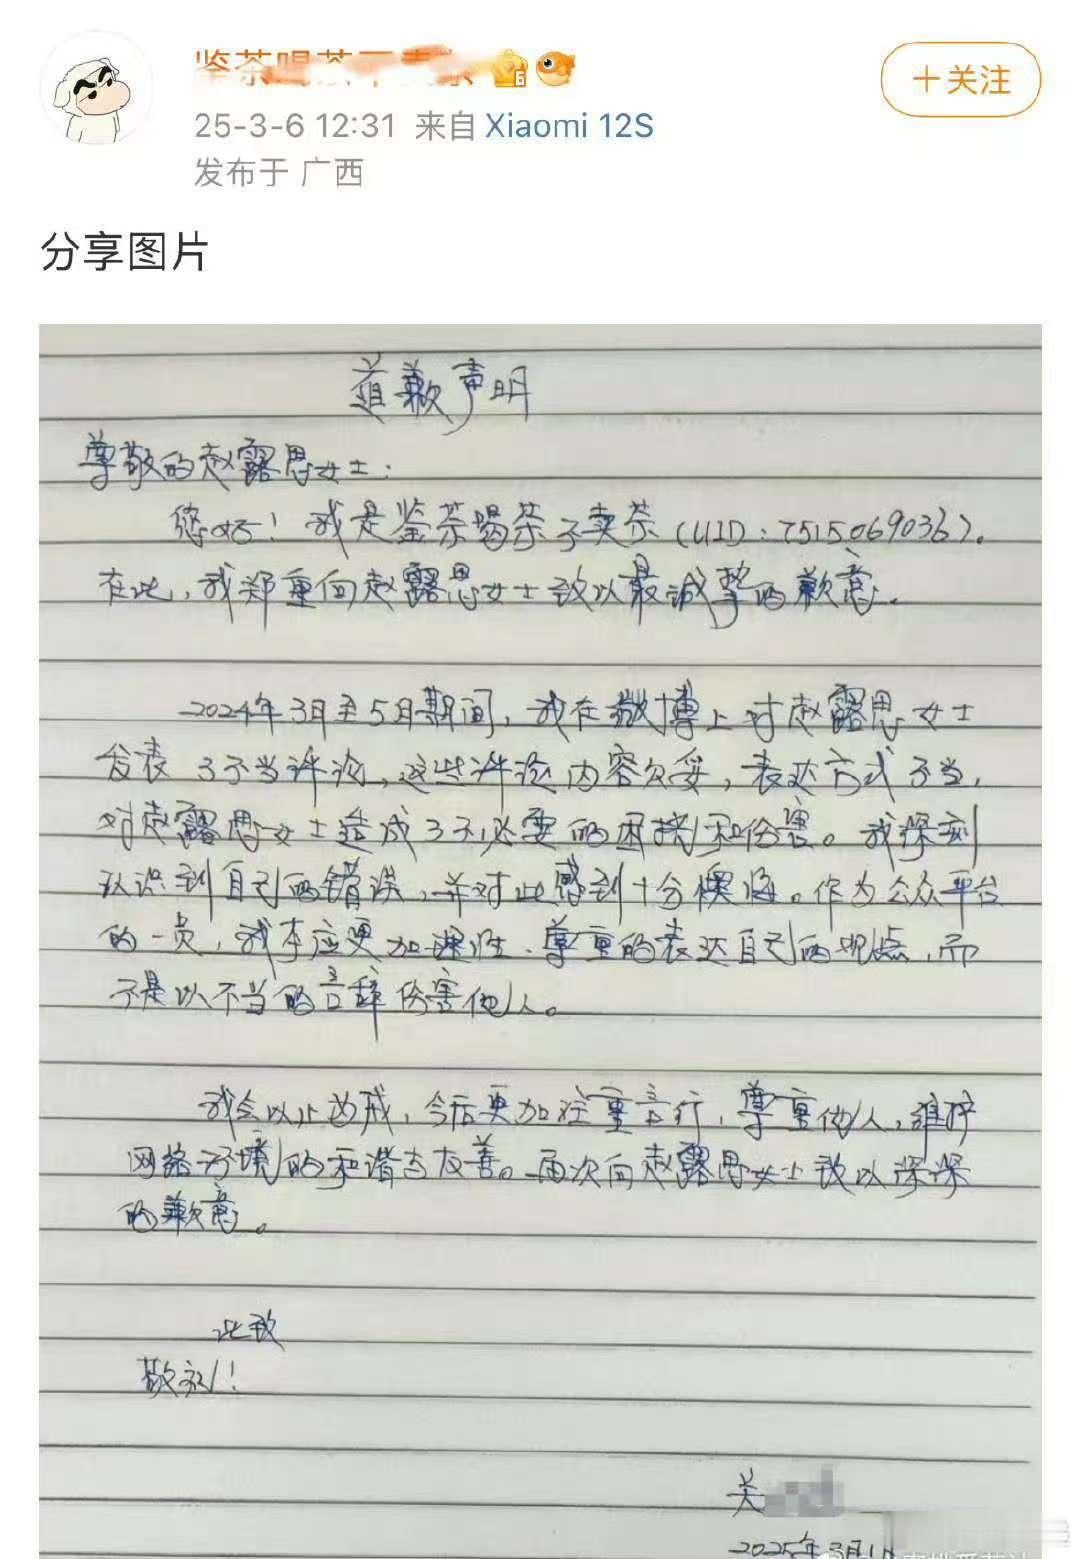 鉴茶喝茶不卖茶
25-3-6 12:31 来自 Xiaomi 12S
发布于 广西
+关注
分享图片
道歉声明
尊敬的赵露思女士:
您好!我是鉴茶喝茶不卖茶(UID:7515069036)。
在此,我郑重向赵露思女士致以最诚挚的歉意.
2024年3月至5月期间,我在微博上对赵露思女士
发表了不当评论,这些评论内容欠妥,表达方式不当,
对赵露思女士造成了不必要的困扰和伤害。我深刻
认识到自己的错误,并对此感到十分懊悔。作为公众平台
的一员,我本应更加理性、尊重的表达自己的观点,而
不是以不当的言辞伤害他人。
我会以此为戒,今后更加注重言行,尊重他人,维护
网络环境的和谐与友善。再次向赵露思女士致以深深
的歉意。
此致
敬礼!
关
2025年3月1日